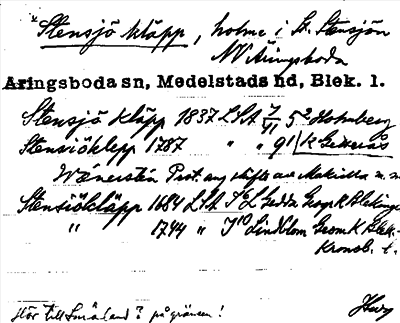 * Stensjö kläpp, holme i St. Stensjön
NV Åringsboda
Åringsboda sn, Medelstads hd, Blek. l.
Stensjö kläpp 1837 LSA 7/91 5² Holmberg
Stensiöklepp 1787 " " 91
Wänerstén Prot. ang skifte av
Stensiökläpp 1684 LSA L Gedda Geogr K Blekinge
" 1744 " Lindblom Geom K Blek.-
Kronob. l.
Hör till Småland? på gränsen!